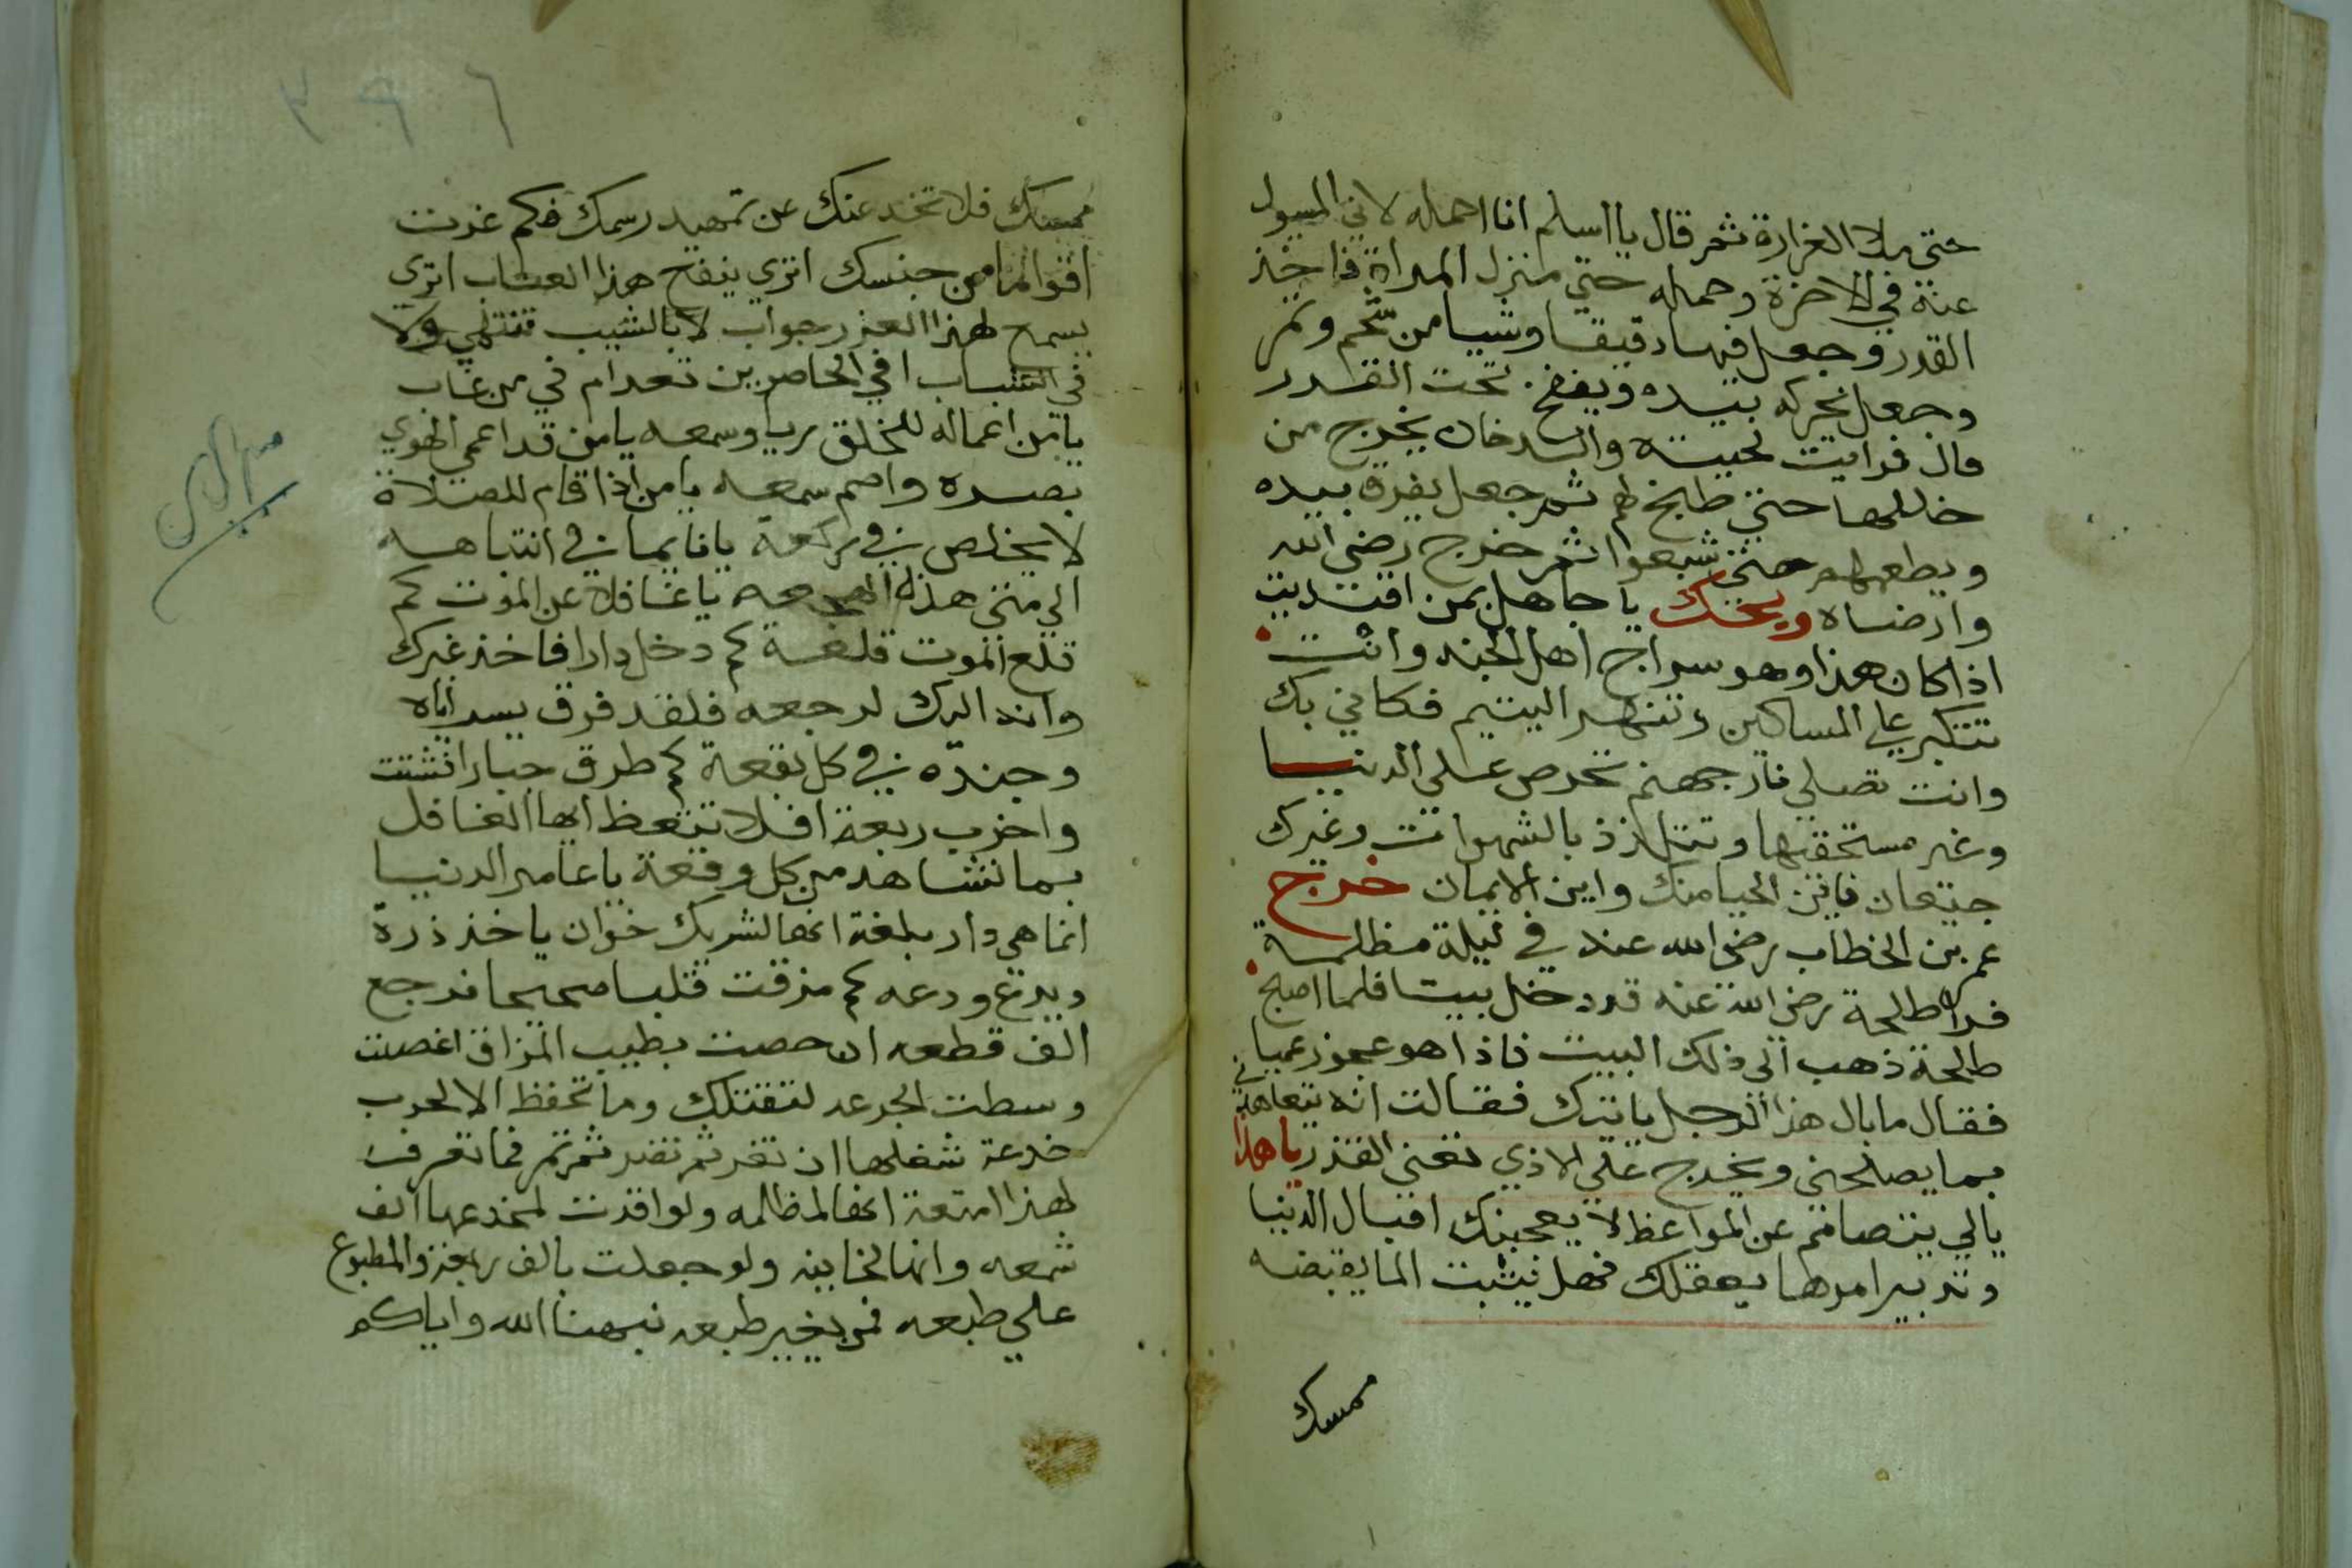 حتى ملا الغرارة ثمر قال يا اسلم انا احمله لاني المسول
عنه في الاخرة وحمله حتي منزل المراة فاخذ
القدر وجعل فيها دقيقا وشيا من شحم وتمر
وجعل يحركه بيده وينفخ تحت القدر
قال فرايت لحيته والدخان يخرج من
خللها حتي طبخ لهم ثمر جعل يغرف بيده
ويطعمهم حتي شبعوا ثمر خرج رضي الله
وارضاه ويحك يا جاهل بمن اقتديت
اذا كان هذا وهو سراج اهل الجنه وانت
تتكبر علي المساكين وتنهر اليتيم فكاني بك
وانت تصلي نار جهنم تحرص علي الدنيا
وغير مستحقيها وتتلذذ بالشهوات وغيرك
جيعان فاين الحيا منك واين الايمان خرج
عمر بن الخطاب رضي الله عنه في ليلة مظلمة
فراه طلحة رضي الله عنه قد دخل بيتا فلما اصبح
طلحة ذهب الي ذلك البيت فاذا هو عجوز عميا
فقال ما بال هذا الرجل ياتيك فقالت انه يتعاهدني
بما يصلحني ويخرج علي الاذي يعني القذر يا هذا
يا لي يتصامم عن المواعظ لا يعجبنك اقبال الدنيا
وتدبير امرها بعقلك فهل يثبت الما يقبضه
ممسك
٣٩٦
ممسك فلا تخدعنك عن تمهيد رسمك فكم غرت
اقواما من جنسك اتري ينفع هذا العتاب اتري
يسمع لهذا العذر جواب لا بالشيب تنتهي ولا
في الشباب افي الحاضرين تعد ام في من غاب
يا من اعماله للخلق ريا وسمعه يا من قد اعمي الهوي
بصره واصم سمعه يا من اذا قام للصلاة
لا يخلص في ركعة يا نايما في انتباهه
الي متي هذه الهجعه يا غافلا عن الموت كم
قلع الموت قلعة كم دخل دارا فاخذ غيرك
وان اليك لرجعه فلقد فرق
وجنده في كل بقعة كم طرق جبارا فشتت
واخرب ربعه افلا تتعظ ايها الغافل
بما تشاهد من كل وقعة يا عامر الدنيا
انما هي دار بلغة انها لشريك خوان ياخذ ذرة
ويدع ودعه كم مزقت قلبا صحيحا فرجع
الف قطعه ان بطيب المزاق اغصت
وسطت الجرعه لتقتلك وما تحفظ الا لحرب
خدعة شغلها ان تغر ثم تمر فما تعرف
لهذا امتعة انها لمظلمه ولو اقدت لمخدعها الف
شمعه وانها لخاينه ولو جعلت بالف والمطبوع
علي طبعه فمن يغير طبعه نبهنا الله واياكم